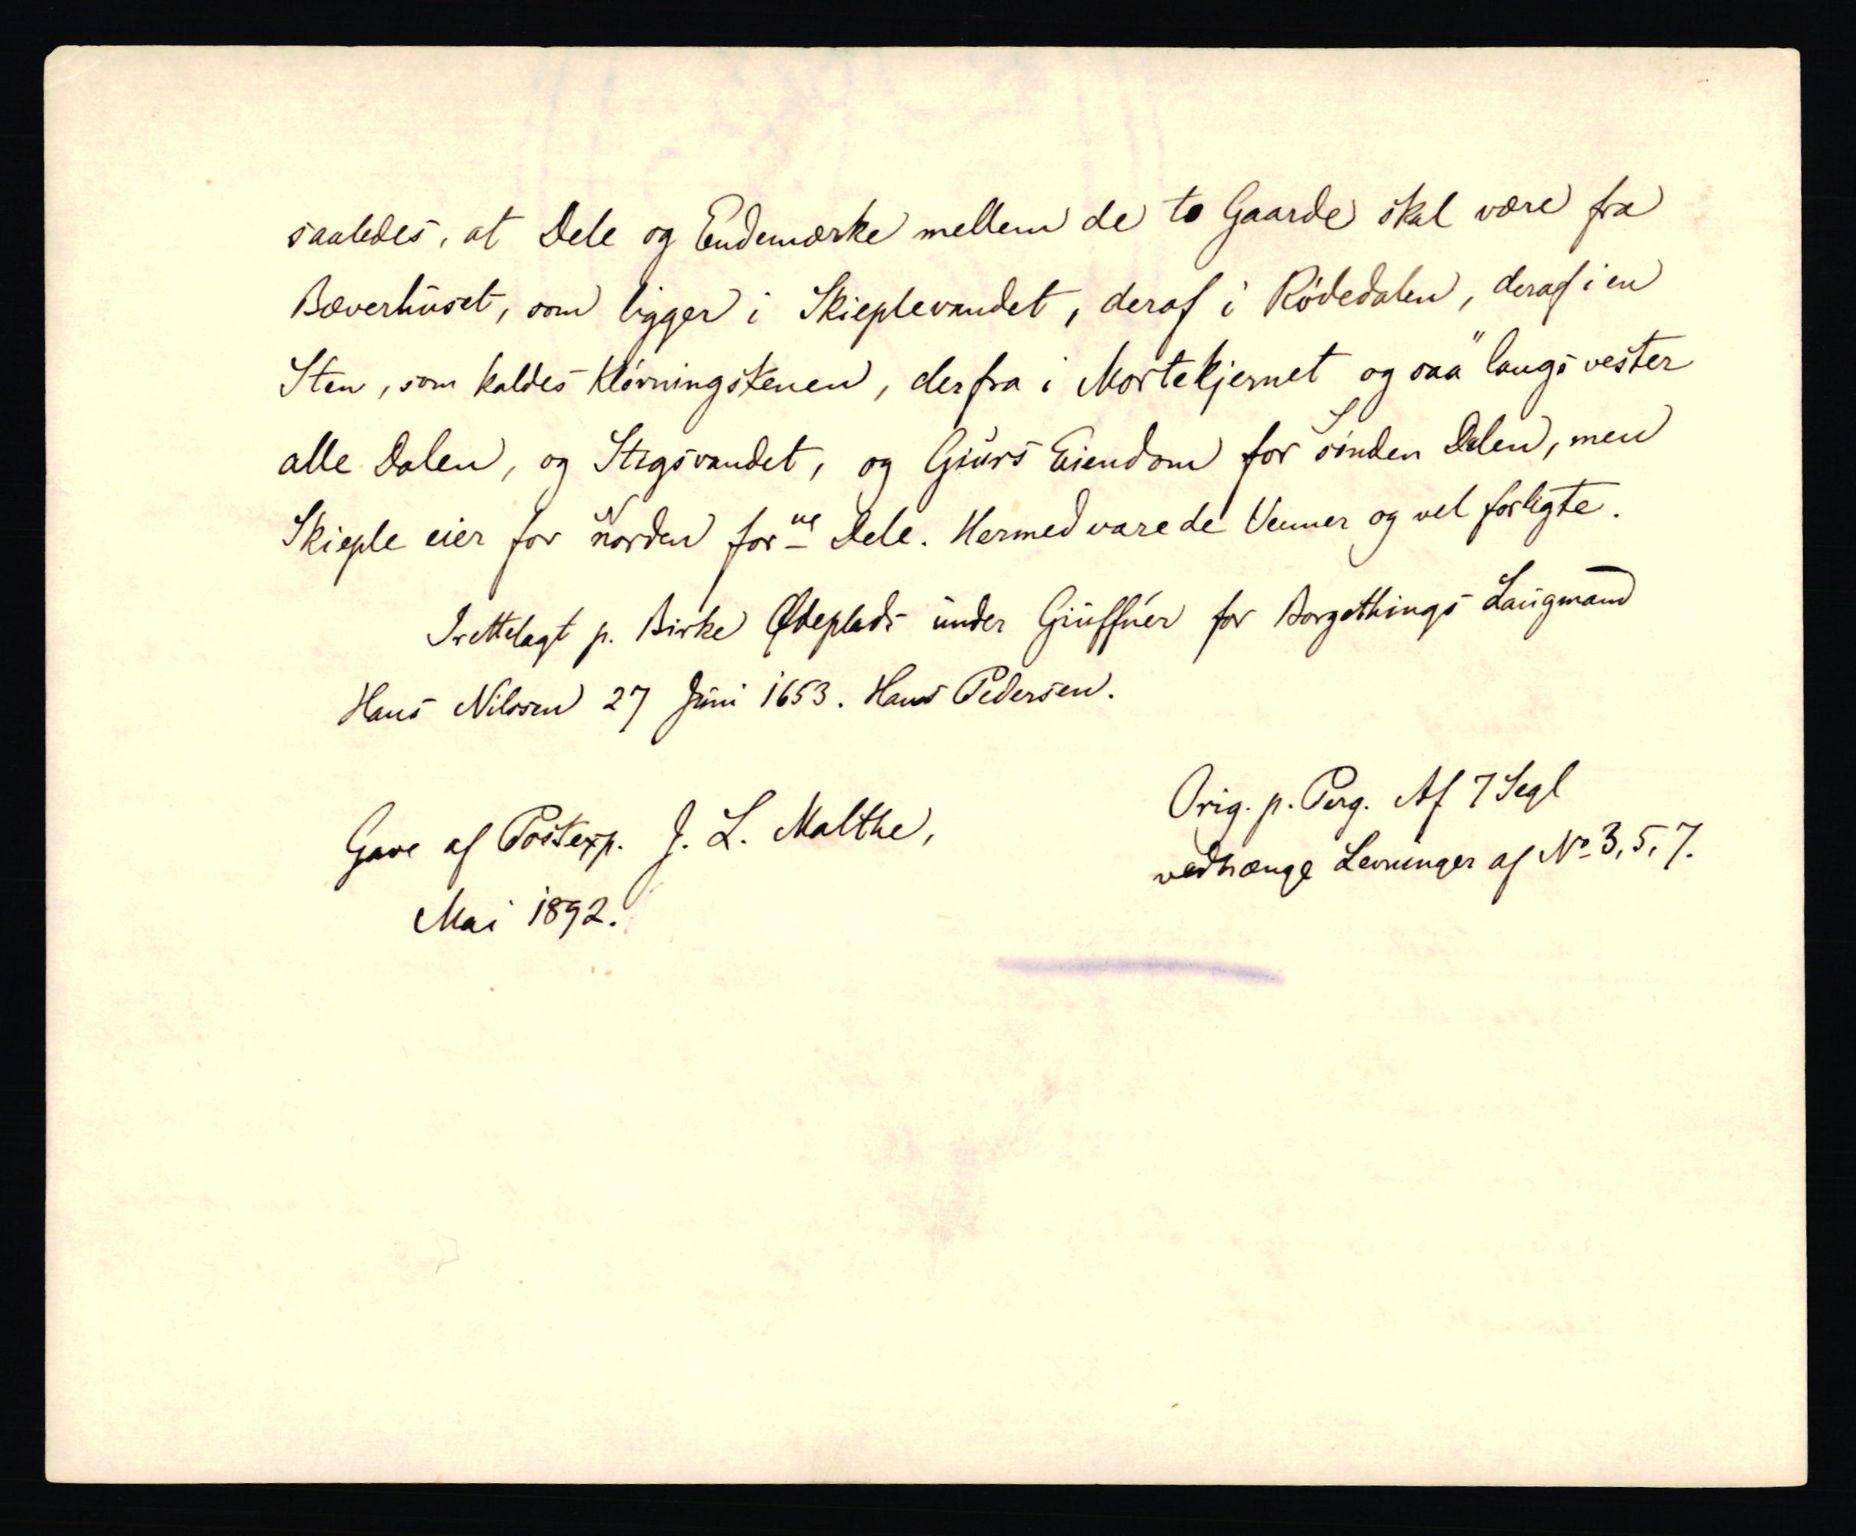 saaledes, at Dele og Endemærke mellem de to Gaarde skal være fra
Bæverhuset, som ligger i Skieplevandet, deraf i Rødedalen, deraf i en
Sten, som kaldes Kløvningstenen, derfra i Mortekjernet og saa langs vester
alle Dalen, og Stegsvandet, og Giurs Eiendom for sønden Delen, men
Skieple eier for norden forne Dele. Hermed vare de Venner og vel forligte.
Irettelagt p. Birke Ødeplads under Giuffuer for Borgethings Laugmand
Hans Nilssen 27 Juni 1653. Hans Pedersen.
Orig. p. Perg. Af 7 Segl
vedhænge Levninger af No 3, 5, 7.
Gave af Postexp. J. L. Malthe,
Mai 1892.